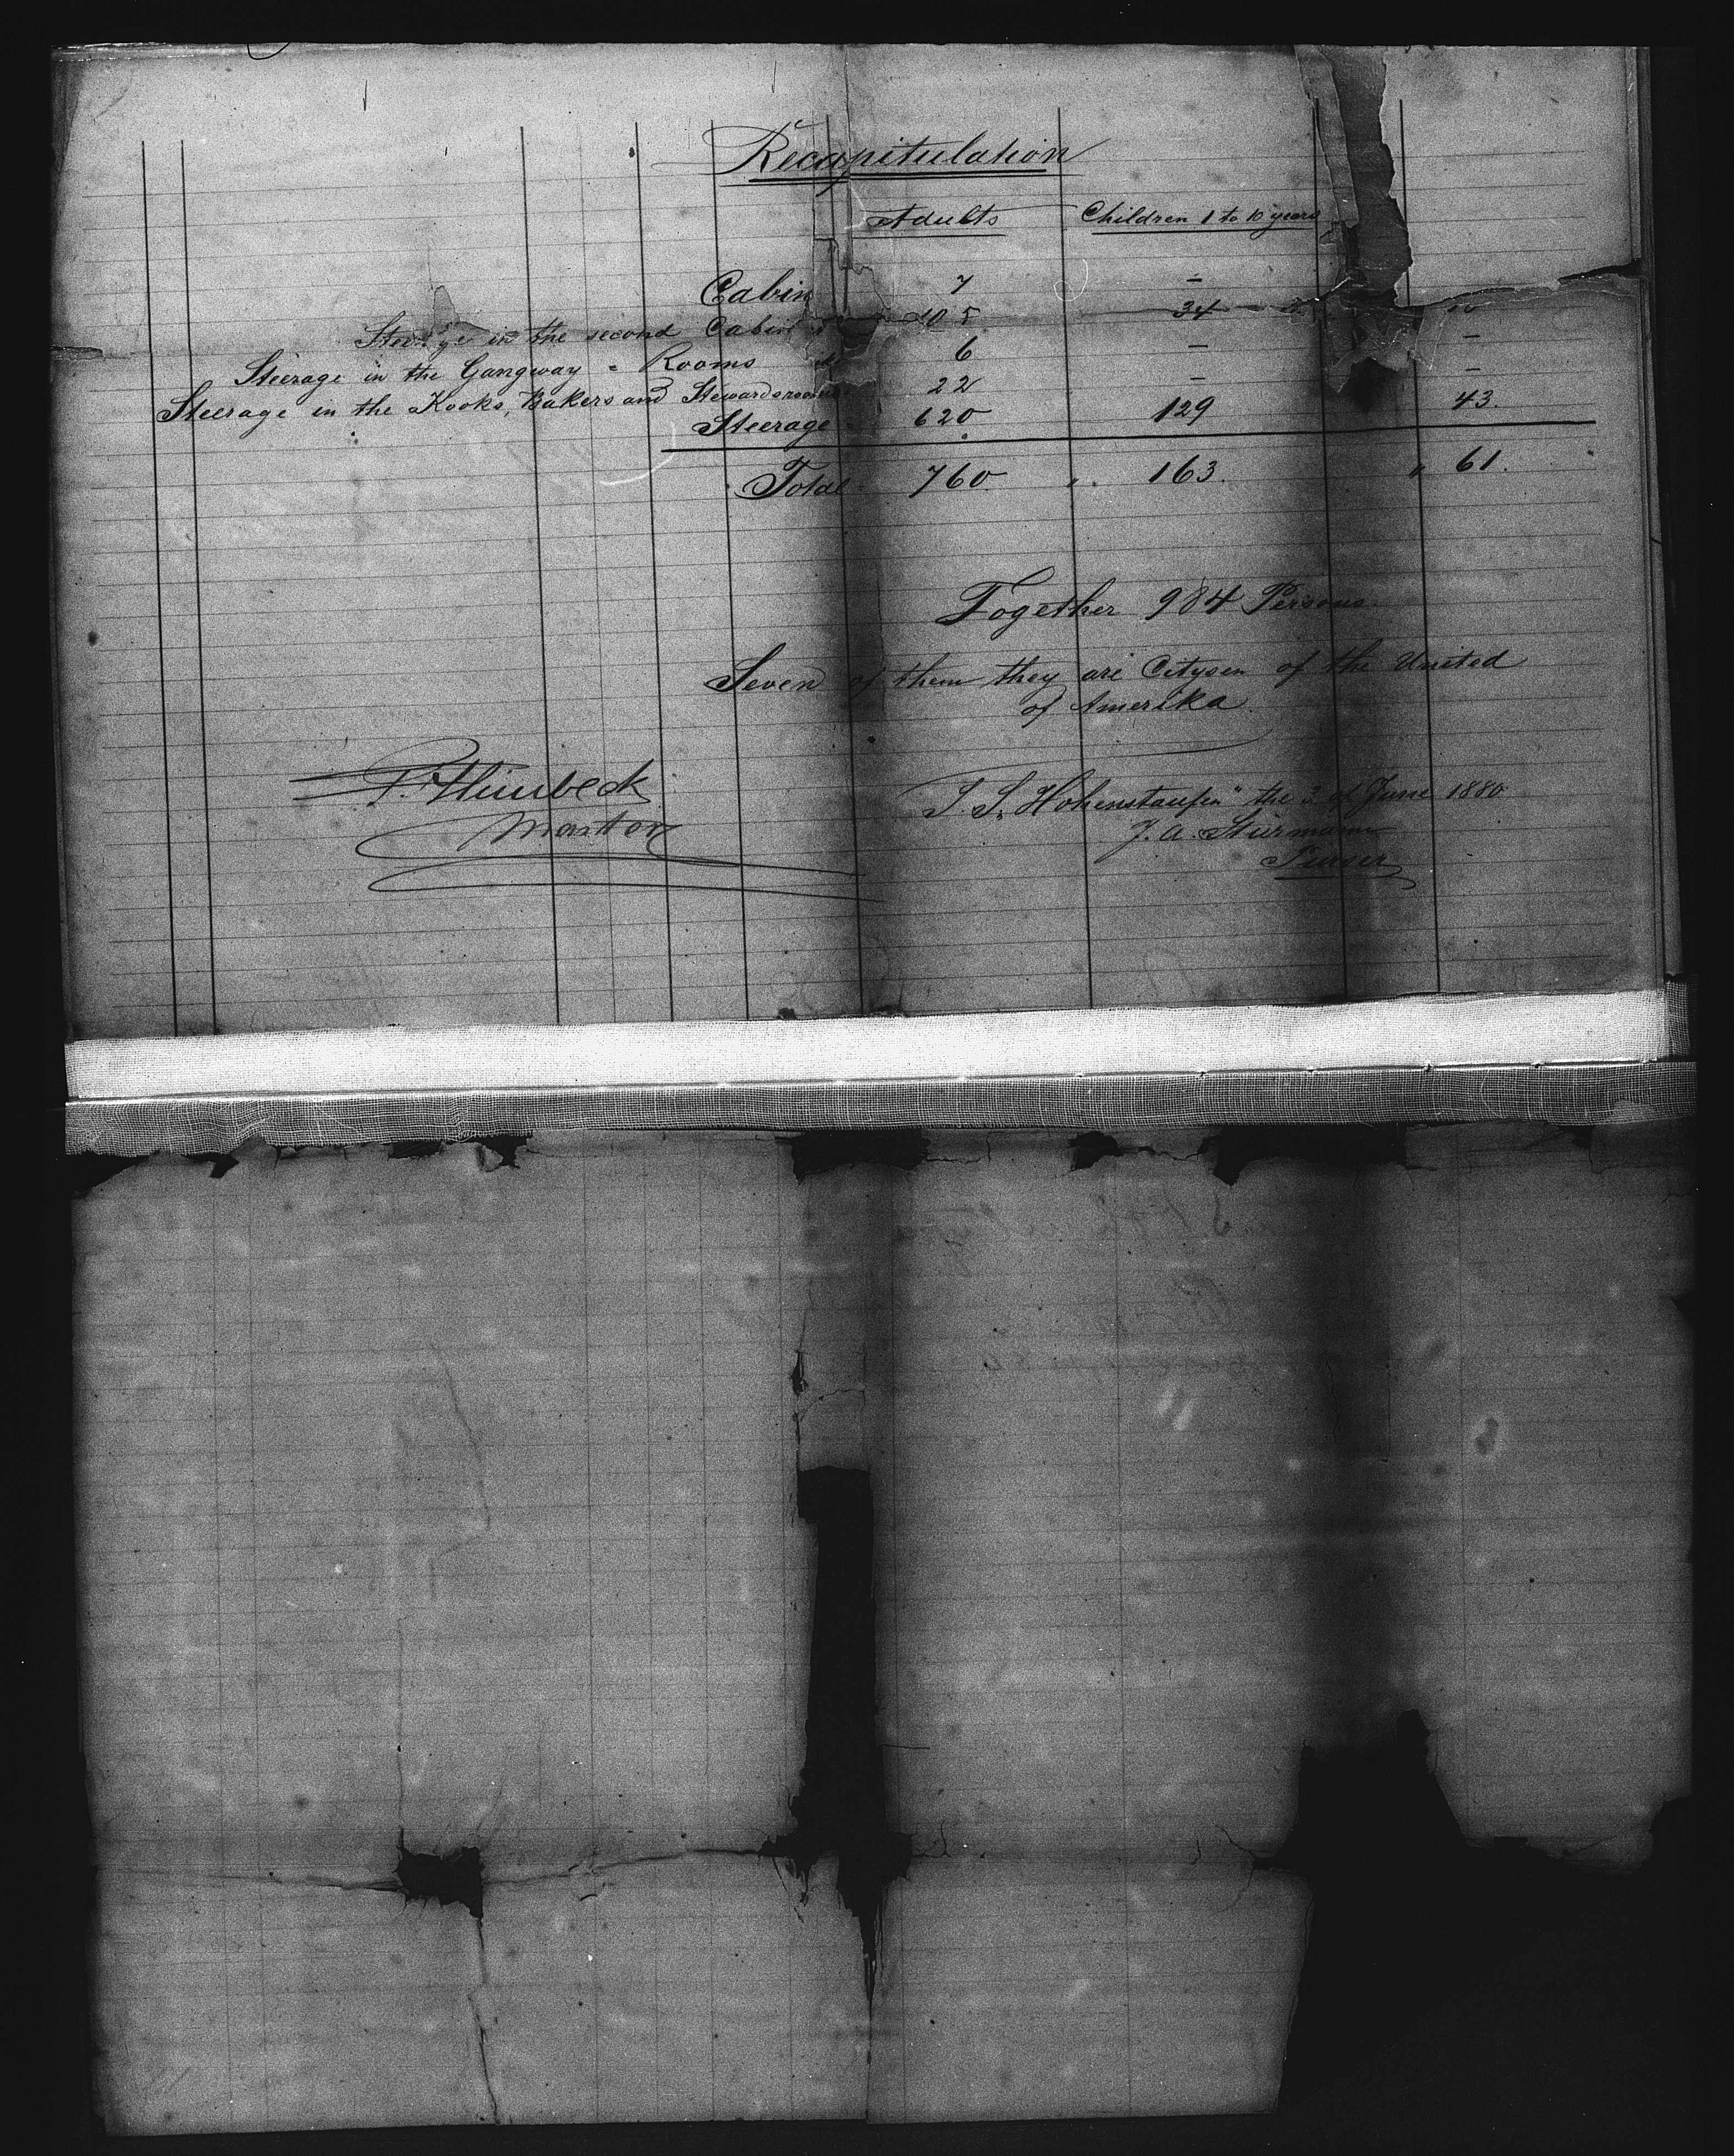 Recapitulation
Adults Children 1 to 10 years
Cabin 7 –
Steerage in the second Cabin 105 34
Steerage in the Gangway = Rooms 6 – –
Steerage in the Kooks, Bakers and Stewardsrooms 22 – –
Steerage 620 129 43.
Total 760 " 163. " 61.
Together 984 Persons.
Seven of them they are Citysen of the United
of Amerika.
S. S. Hohenstaufen" the 3. of June 1880
J. A. Stürmann
Purser